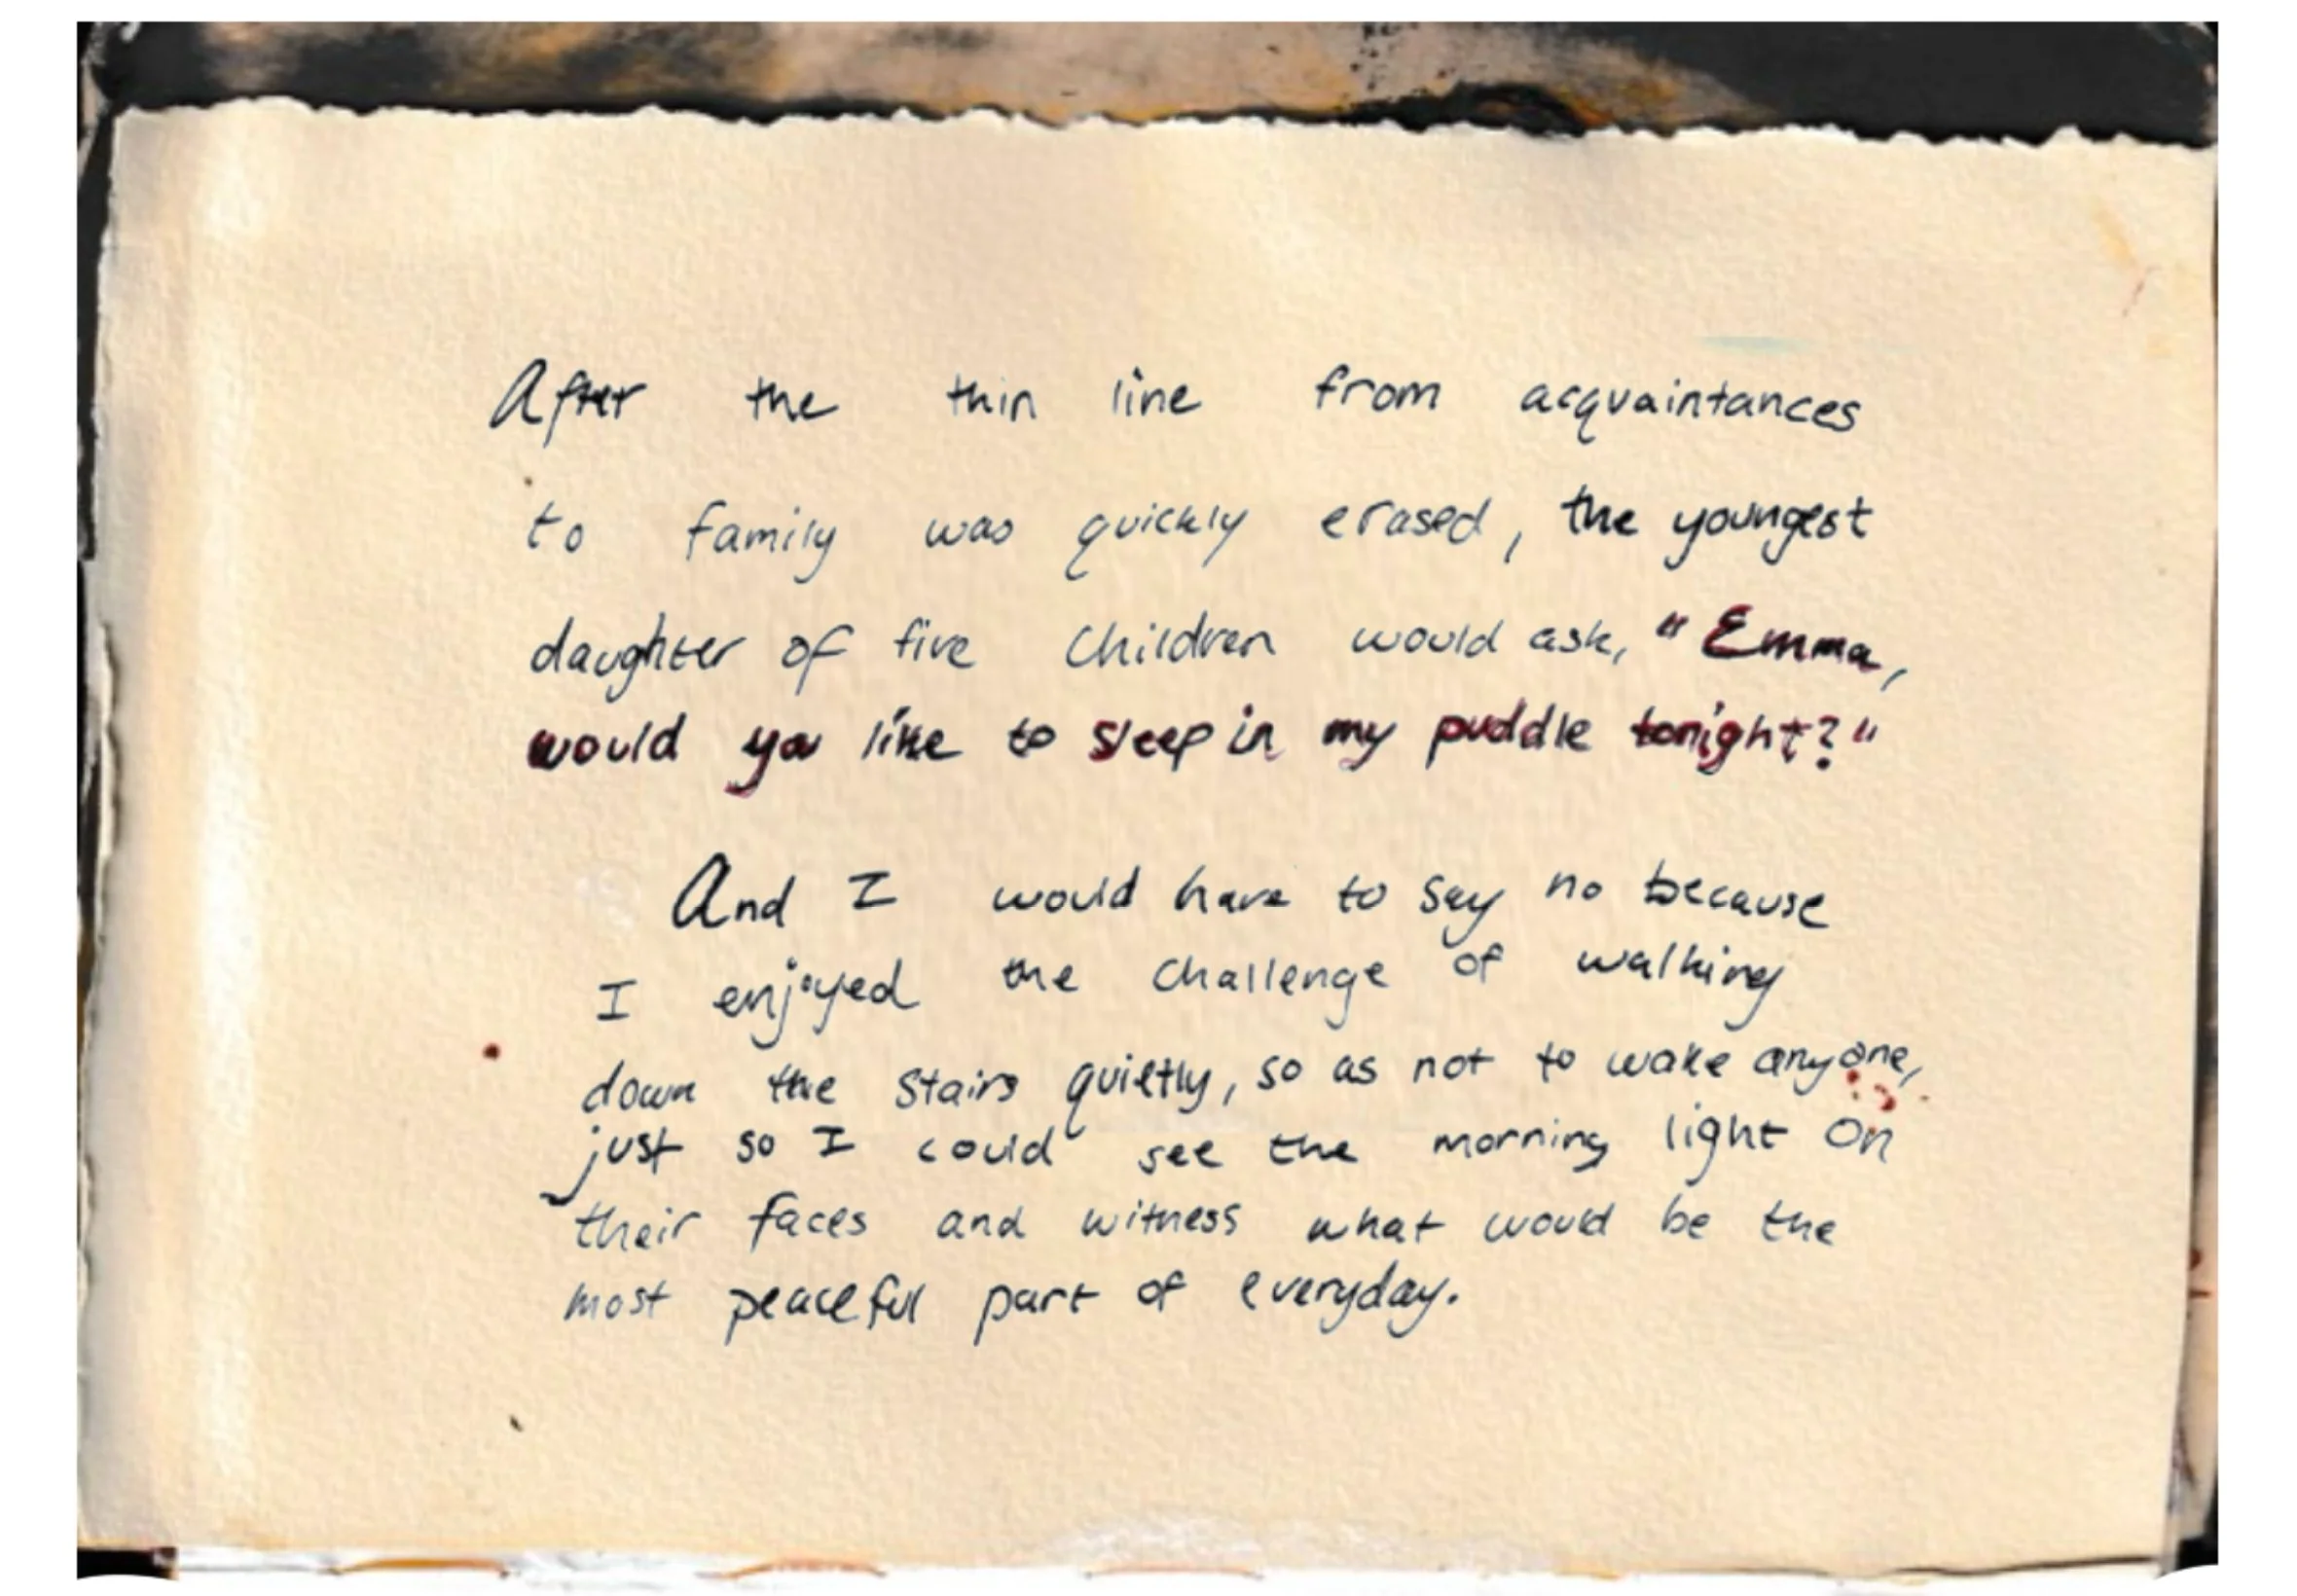 After the thin line from acquaintances
to family was quickly erased, the youngest
daughter of five children would ask, "Emma,
would you like to sleep in my puddle tonight?"
And I would have to say no because
I enjoyed the challenge of walking
down the stairs quietly, so as not to wake anyone,
just so I could see the morning light on
their faces and witness what would be the
most peaceful part of everyday.